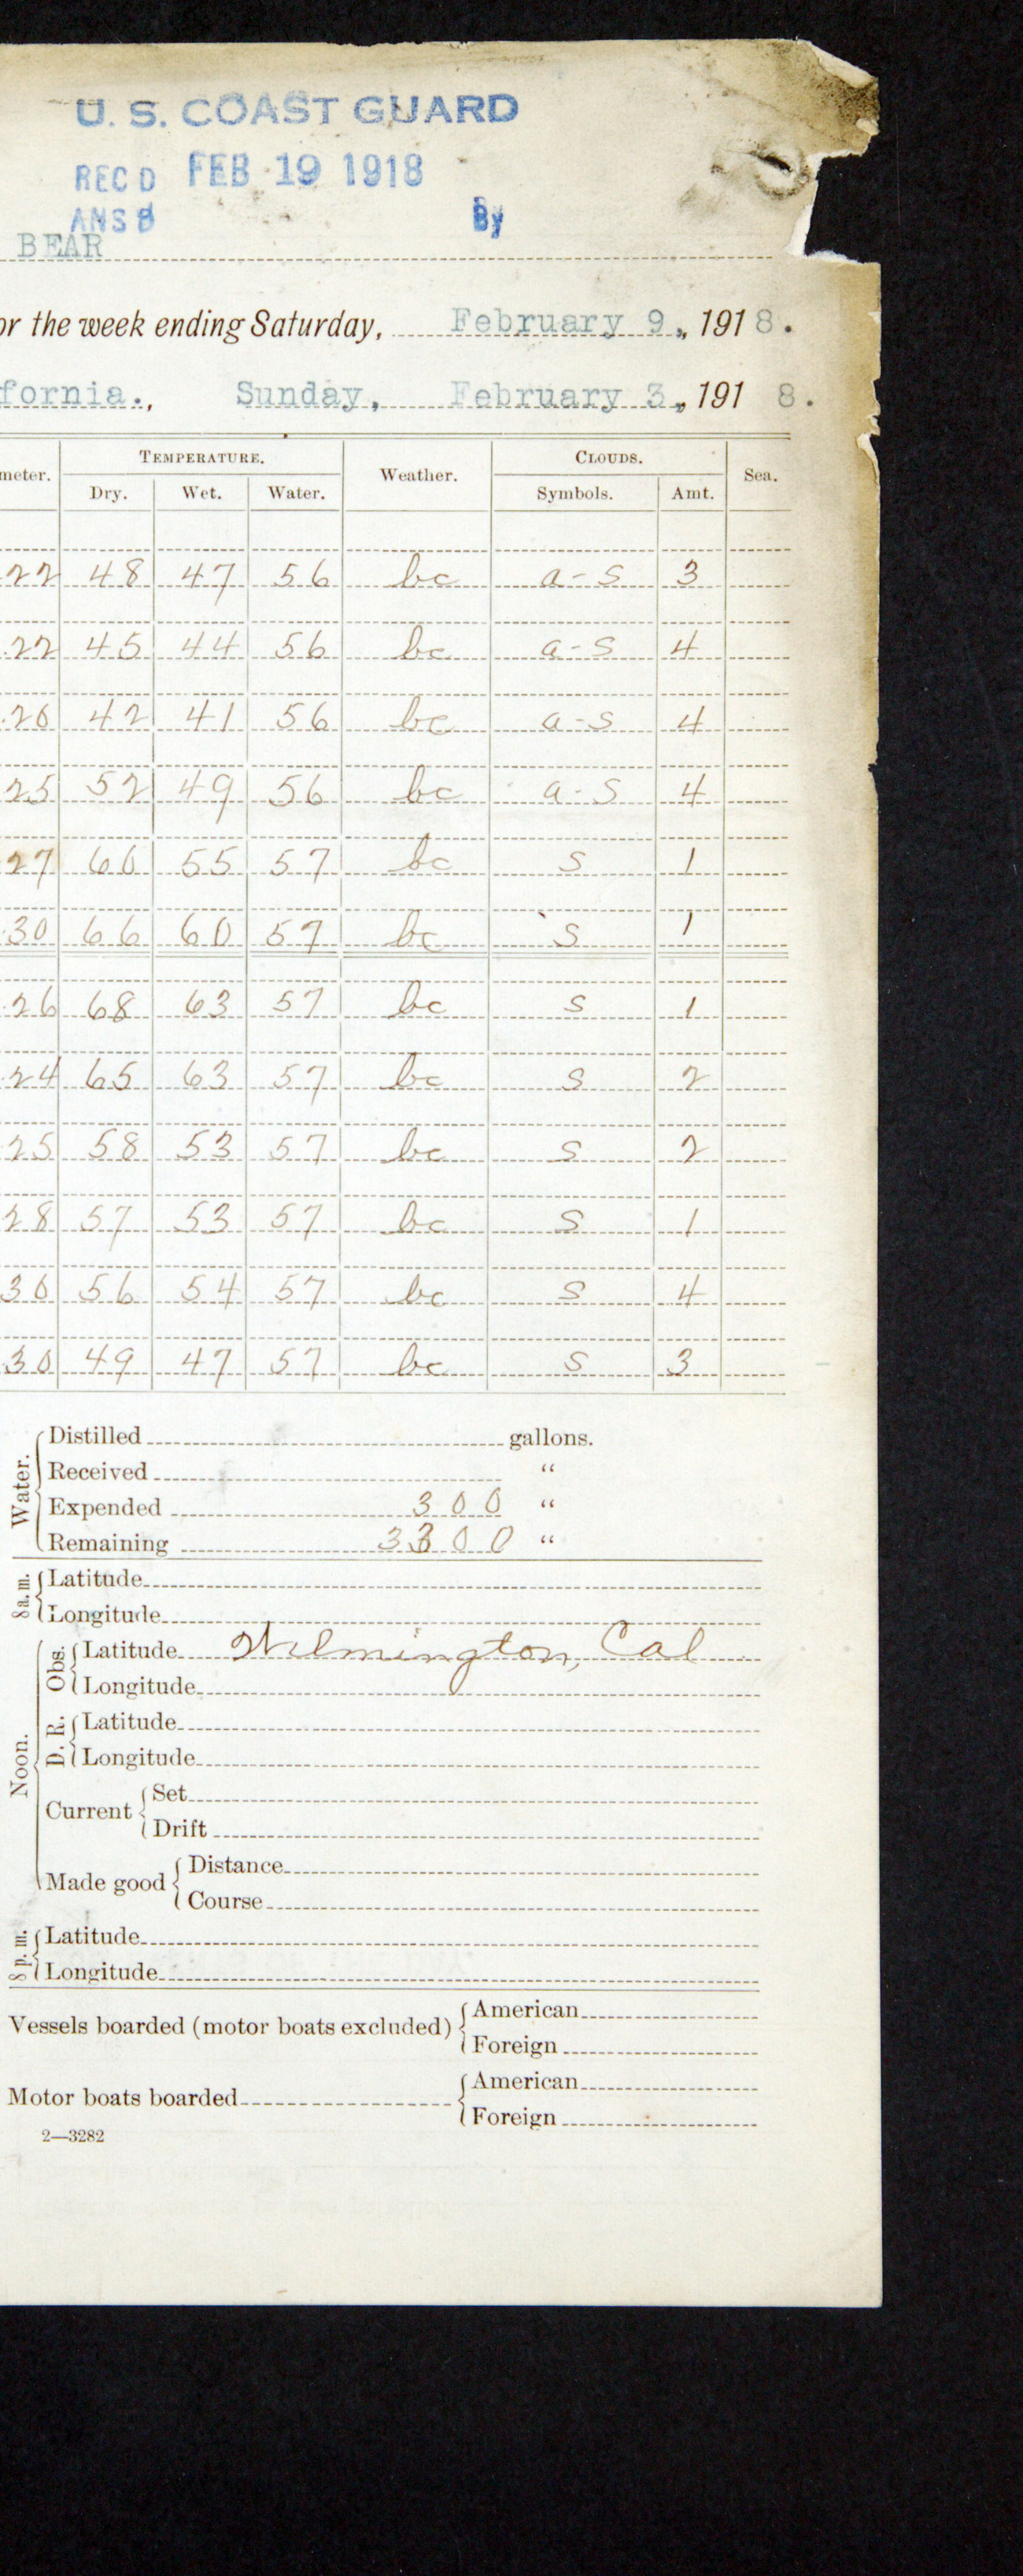 U. S. COAST GUARD
REC'D FEB 19 1918
ANS'D By
BEAR
or the week ending Saturday, February 9, 1918.
fornia., Sunday, February 3, 1918.
meter. TEMPERATURE. Weather. CLOUDS. Sea.
Dry. Wet. Water. Symbols. Amt.
.22 48 47 56 bc a-s 3
.22 45 44 56 bc a-s 4
.20 42 41 56 bc a-s 4
25 52 49 56 bc a-s 4
27 60 55 57 bc s 1
30 66 60 57 bc s 1
.26 68 63 57 bc s 1
.24 65 63 57 bc s 2
25 58 53 57 bc s 2
28 57 53 57 bc s 1
30 56 54 57 bc s 4
30 49 47 57 bc s 3
Water.
Distilled gallons.
Received "
Expended 300 "
Remaining 3300 "
8 a.m.
Latitude
Longitude
Noon.
Obs.
Latitude Wilmington, Cal
Longitude
D. R.
Latitude
Longitude
Current
Set
Drift
Made good
Distance
Course
8 p.m.
Latitude
Longitude
Vessels boarded (motor boats excluded)
American
Foreign
Motor boats boarded
American
Foreign
2—3282